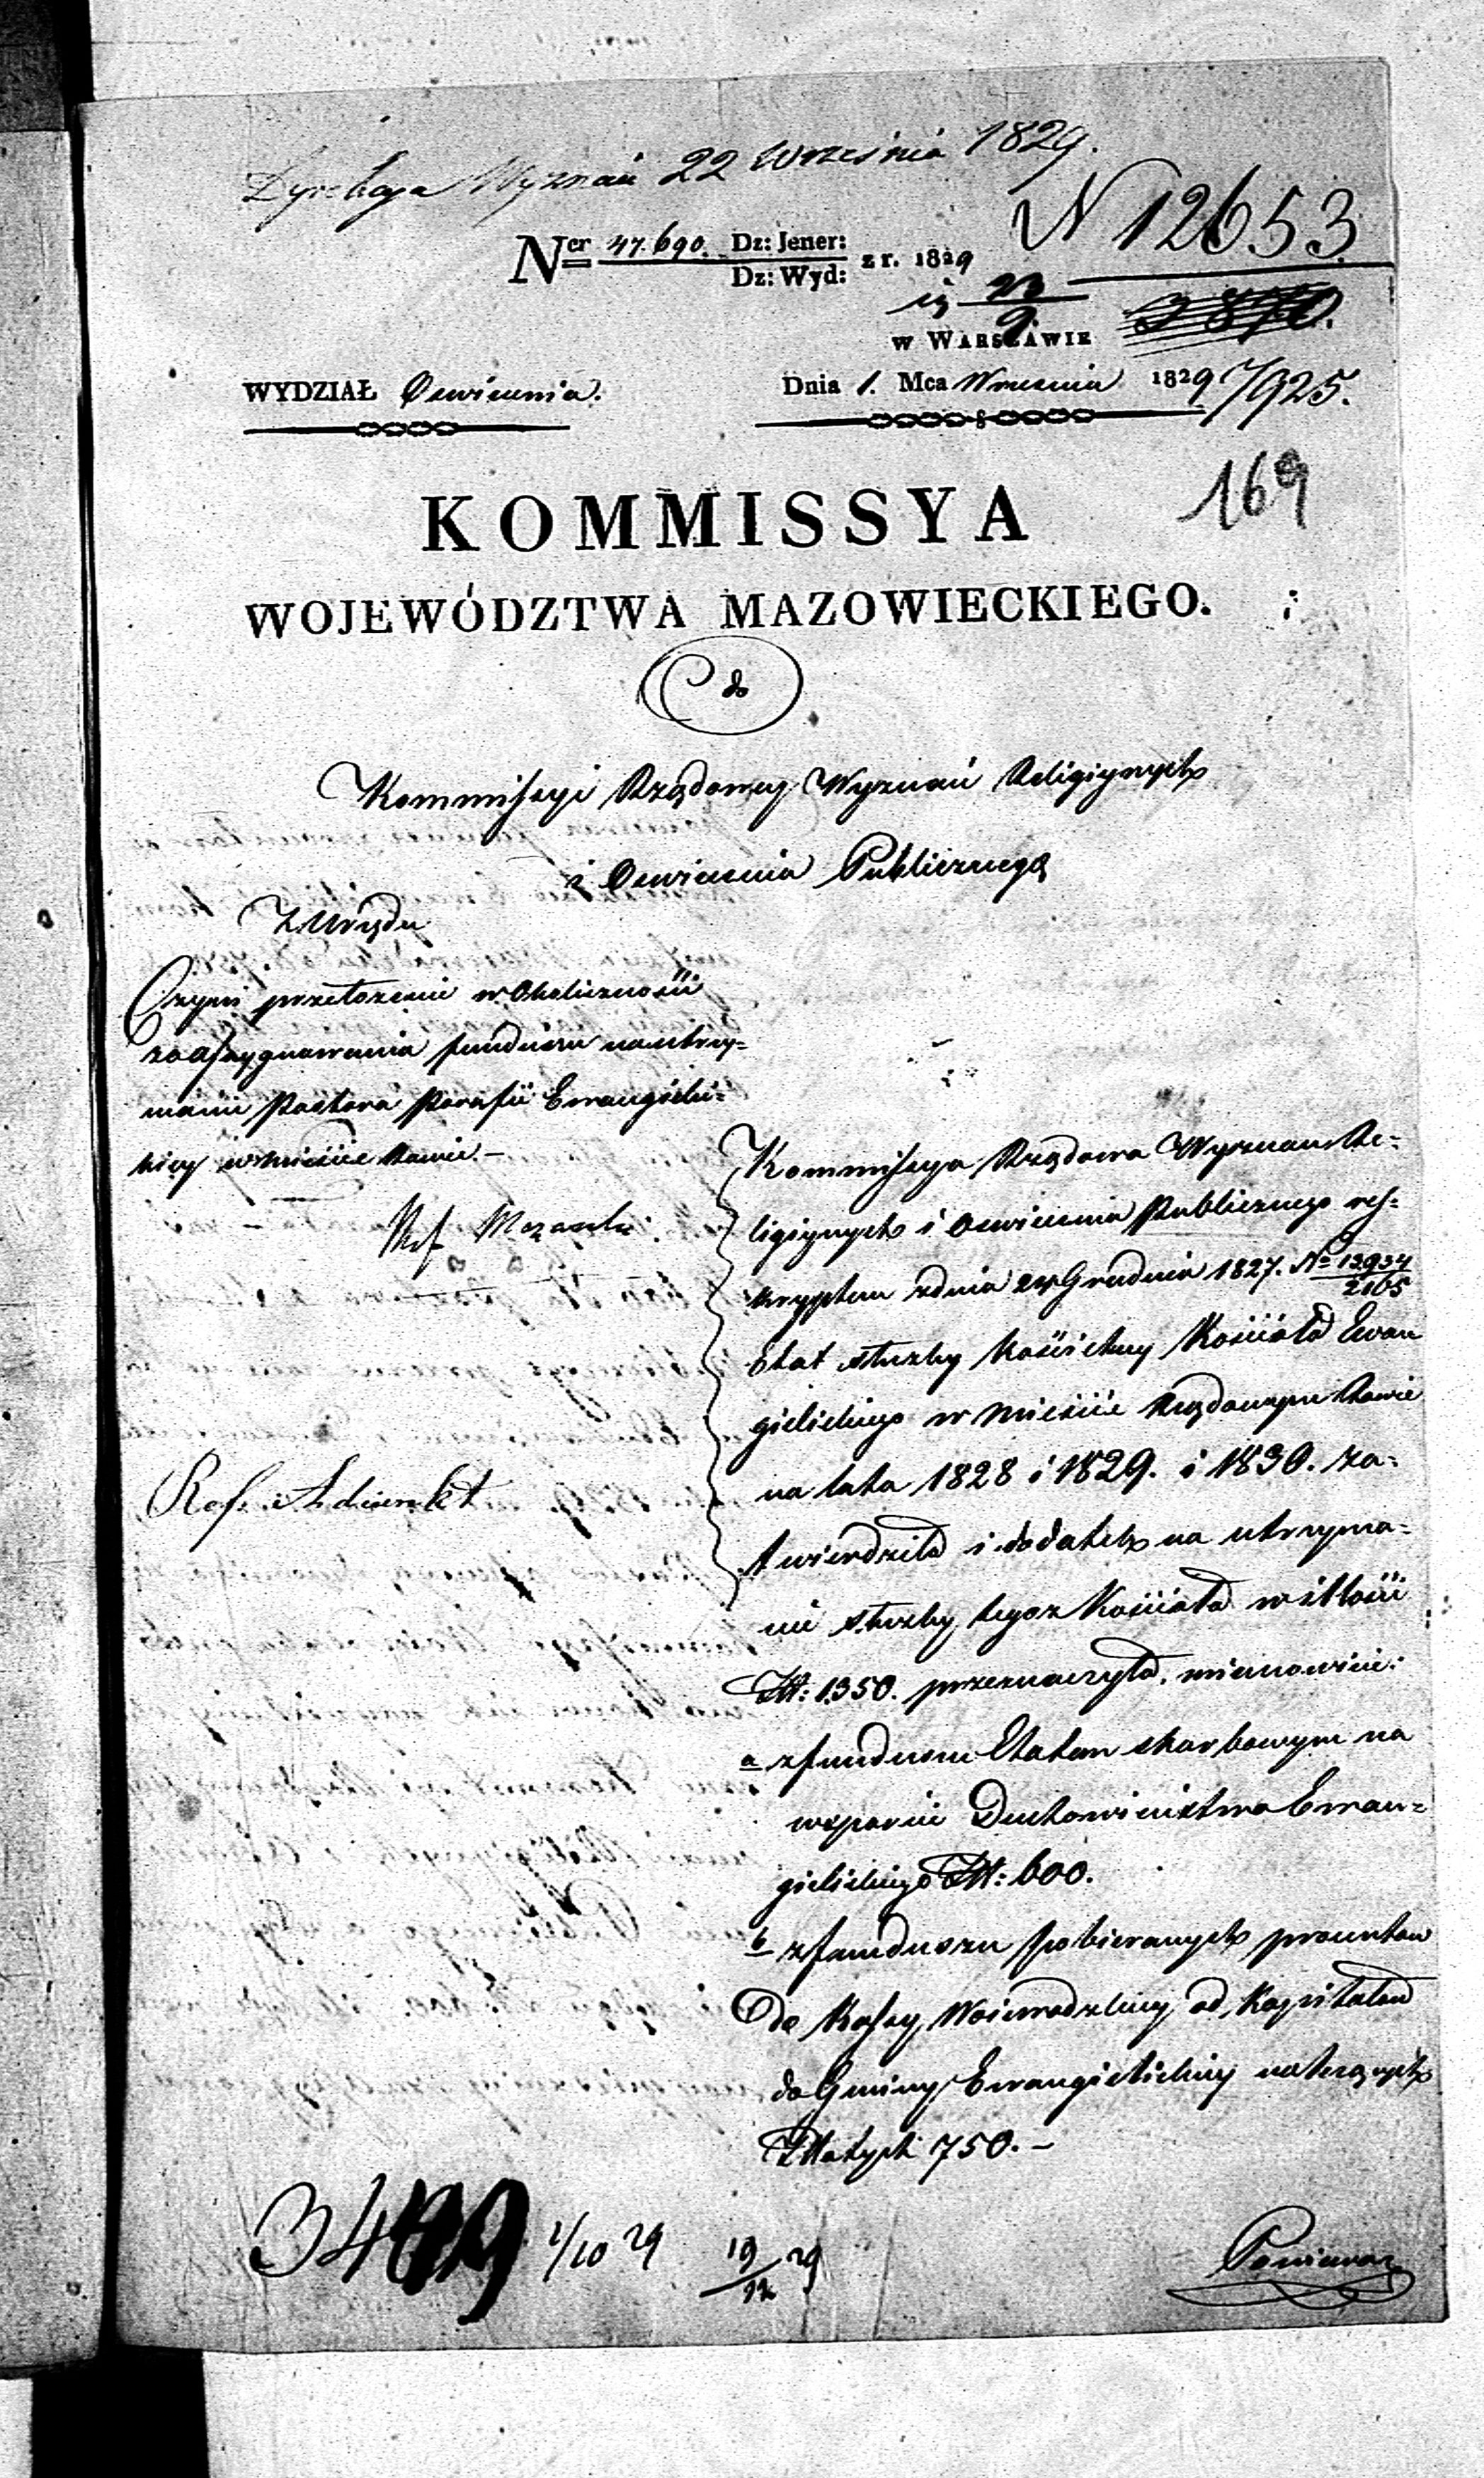 Dyrekcya Wyznań 22 Września 1829.
N 12653.
Ner 47.690. Dz: Jener:
Dz: Wyd: z r. 1829
w WARSZAWIE
WYDZIAŁ Oswiecenia.
Dnia 1. Mca Wrzesnia 1829
7925.
169
KOMMISSYA
WOJEWÓDZTWA MAZOWIECKIEGO.
do
Kommissyi Rządowey Wyznań Religiynych
i Oswiecenia Publicznego
Z Urzędu
Czyni przełożenie w Okoliczności
zaassygnowania funduszu na utrzy=
manie Pastora Parafii Ewangielic=
kiey w Mieście Rawie. –
Ref.
Kommissya Rządowa Wyznan Re=
ligiynych i Oswiecenia Publicznego res=
kryptem z dnia 24 Grudnia 1827. No 13934
2165
Etat służby Kościelney Kościoła Ewan
gielickiego w Mieście Rządowym Rawie
na lata 1828 i 1829. i 1830. za=
twierdziła i dodatek na utrzyma=
Ref: Adiunkt
nie służby tegoz Kościoła w ilości
Złł: 1350. przeznaczyła. mianowicie:
a z funduszu Etatem skarbowym na
wsparcie Duchowieństwa Ewan=
gielickiego Złł: 600.
b z funduszu pobieranych procentow
do Kassy Woiewodzkiey od Kapitałow
do Gminy Ewangielickiey należących
Złłotych 750. –
1/10 29
19/12 29
Ponieważ